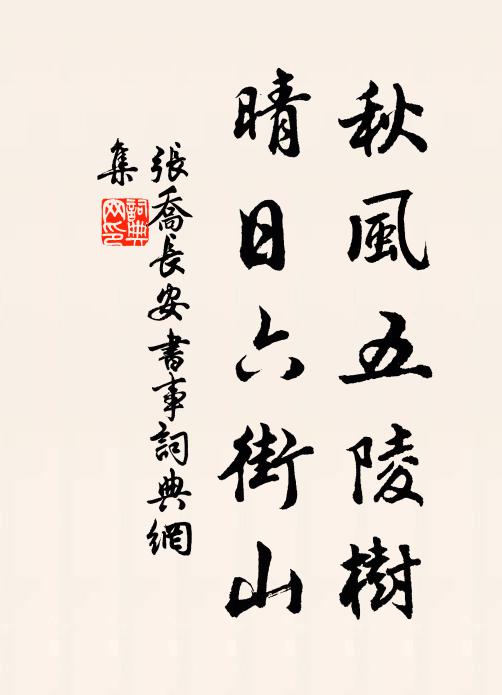 秋風五陵樹
晴日六街山
張喬長安書事詞典網
集
詞典
网印